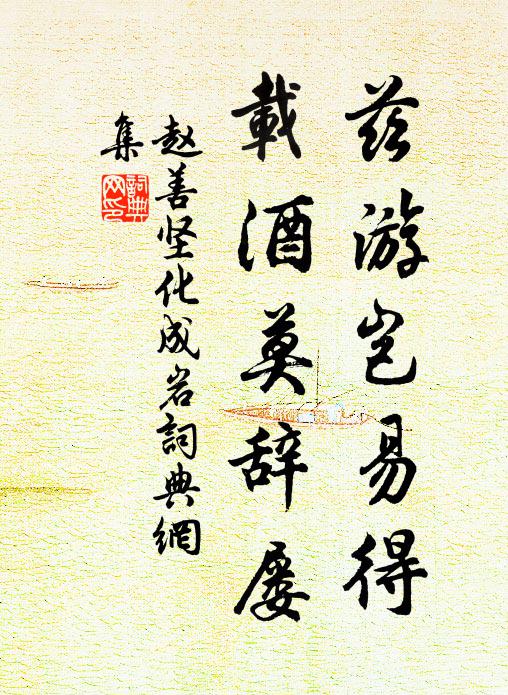 兹游岂易得
載酒莫辞屡
赵善坚化成岩詞典網
集
詞典
网印